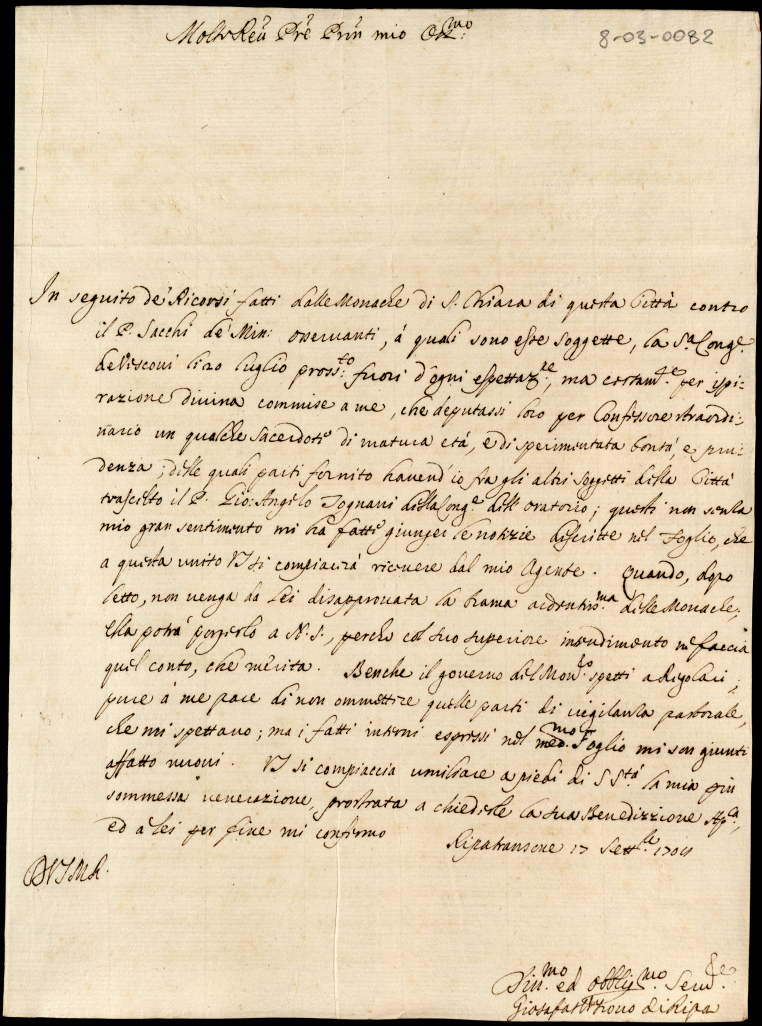 Molto Reu. Pre Prin mio Oss.mo
8-03-0082
In seguito de' Ricorsi fatti dalle Monache di S. Chiara di questa Città contro
il P. Sacchi de' Min: osservanti, à quali sono esse soggette, la S.a Cong.e
de Vescovi li 20 luglio pross.to fuori d'ogni espettaz.ne, ma certam.te per ispi-
razione divina commise a me, che deputassi loro per Confessore straordi-
nario un qualche sacerdote di matura età, e di sperimentata bontà, e pru-
denza; delle quali parti fornito havend'io fra gli altri soggetti della Città
trascielto il P. Gio: Angelo Tognani della Cong.e dell'oratorio; questi non senza
mio gran sentimento mi hà fatte giunger le notizie descritte nel Foglio, che
a questa unito VS si compiacerà ricevere dal mio Agente. Quando, dopo
letto, non venga da Lei disapprovata la brama ardentiss.ma delle Monache,
ella potrà porgerlo a N. S., perche col suo superiore intendimento ne faccia
quel conto, che merita. Benche il governo del Mon.ro spetti a Regolari,
pure à me pare di non ommettere quelle parti di vigilanza pastorale,
che mi spettano; ma i fatti interni espressi nel med.mo Foglio mi son giunti
affatto nuovi. VS si compiaccia umiliare a piedi di S S.tà la mia più
sommessa venerazione, prostrata a chiederle la sua Benedizzione Ap.ca,
ed a Lei per fine mi confermo
Ripatransone 17 Sett.bre 1704
D V S M R.
Din.mo ed obblig.mo Seru.re
Giosafat Vescouo di Ripa